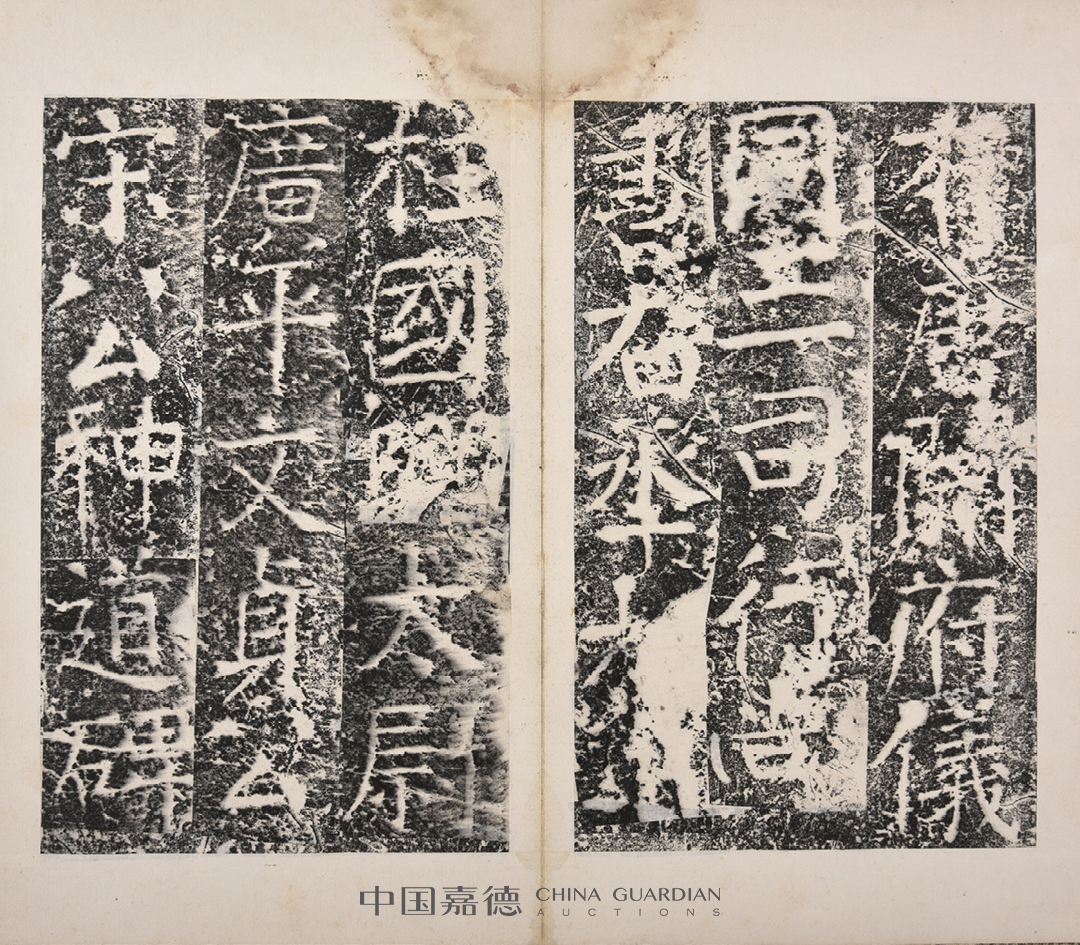 有唐開府儀
同三司行尚
書右丞相
柱國贈太尉
廣平文貞公
宋公神道碑
中国嘉德 CHINA GUARDIAN
AUCTIONS